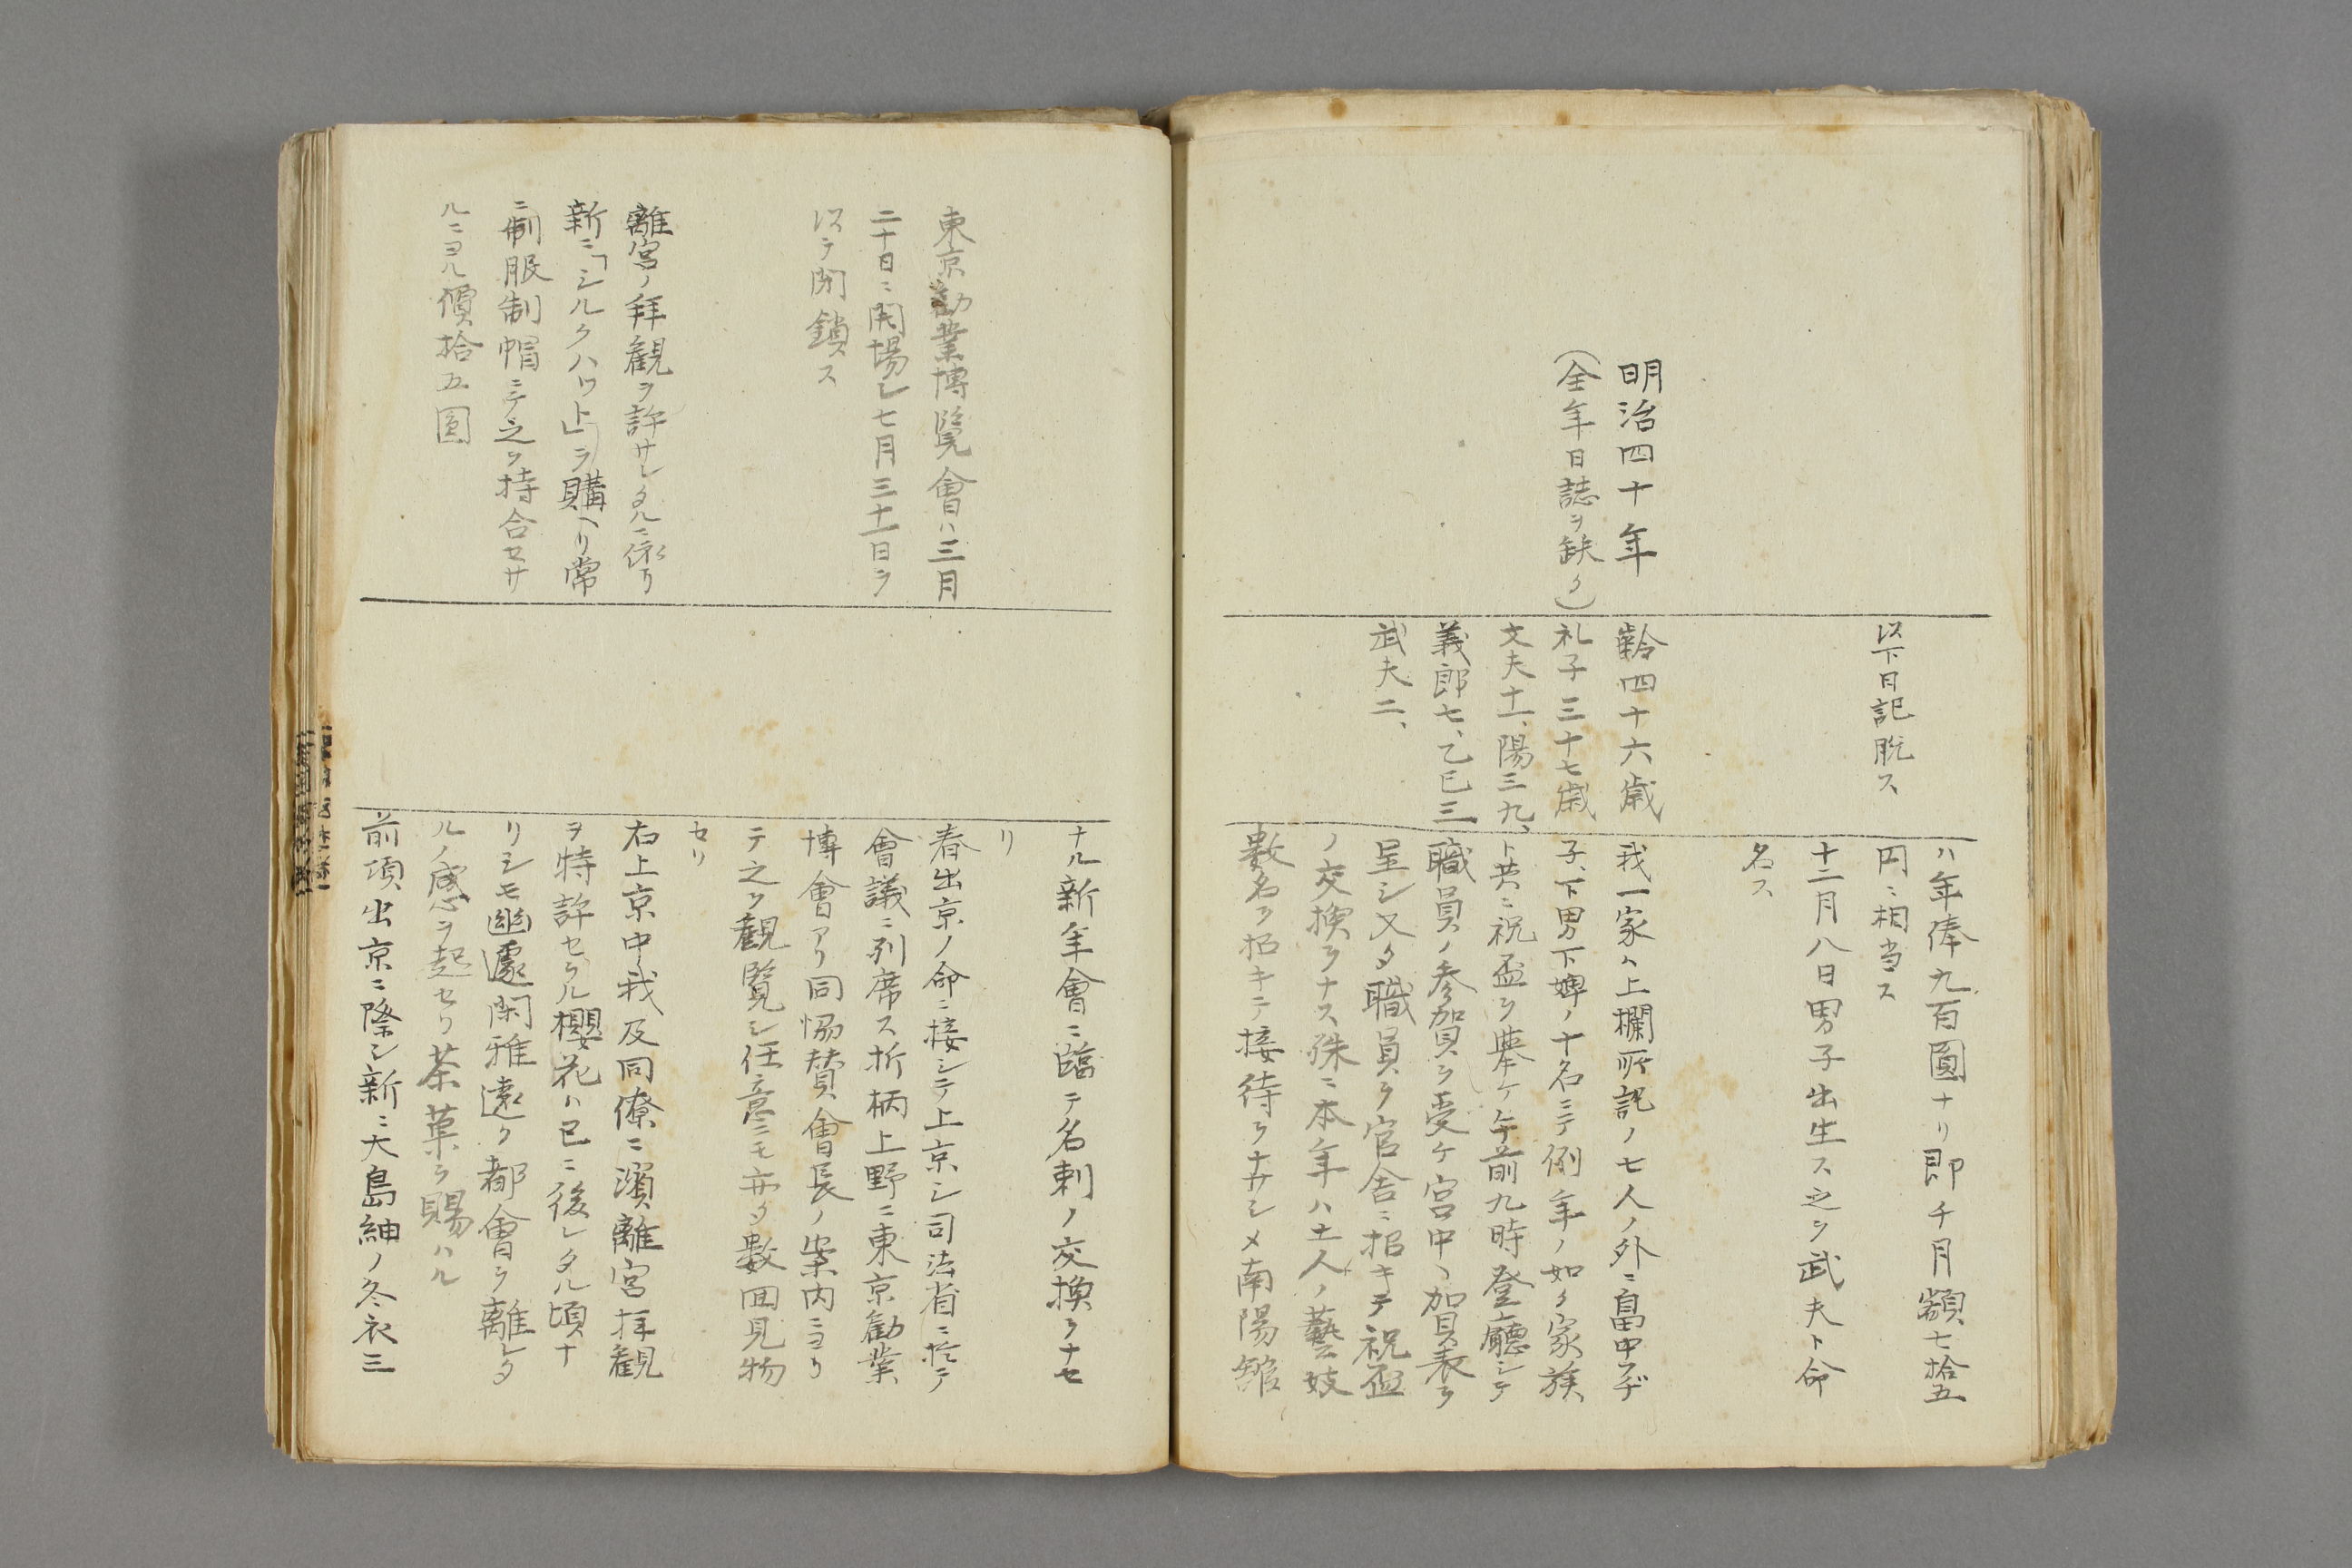 明治四十年
(全年日誌ヲ缺ク)
以下日記脱ス
齢四十六歳
礼子三十七歳
文夫十一、陽三九、
義郎七、乙巳三
武夫二、
ハ年俸九百圓ナリ即チ月額七拾五
円ニ相当ス
十二月八日男子出生ス之ヲ武夫ト命
名ス
我一家ハ上欄所記ノ七人ノ外ニ畠中フデ
子、下男下婢ノ十名ニテ例年ノ如ク家族
ト共ニ祝盃ヲ擧ケ午前九時登廳シテ
職員ノ参加賀ヲ受ケ宮中ヘ加賀表ヲ
呈シ又タ職員ヲ官舎ニ招キテ祝盃
ノ交換ヲナス殊ニ本年ハ土人ノ藝妓
數名ヲ招キテ接待ヲナサシメ南陽舘
東京勧業博覧會ハ三月
二十日ニ開場シ七月三十一日ヲ
以テ閉鎖ス
離宮ノ拝観ヲ許サレタルニ依リ
新ニ「シルクハット」ヲ購ヘリ常
ニ制服制帽ニテ之ヲ持合セサ
ルニヨル價拾五圓
ナル新年會ニ臨テ名刺ノ交換ヲナセ
リ
春出京ノ命ニ接シテ上京シ司法省ニ於テ
會議ニ列席ス折柄上野ニ東京勧業
博會アリ同協賛會長ノ案内ニヨリ
テ之ヲ観覧シ任意ニモ亦タ數回見物
セリ
右上京中我及同僚ニ濱離宮拝観
ヲ特許セラル櫻花ハ已ニ後レタル頃ナ
リシモ幽邃閑雅遠ク都會ヲ離レタ
ルノ感ヲ起セリ茶菓ヲ賜ハル
前項出京ニ際シ新ニ大島紬ノ冬衣三